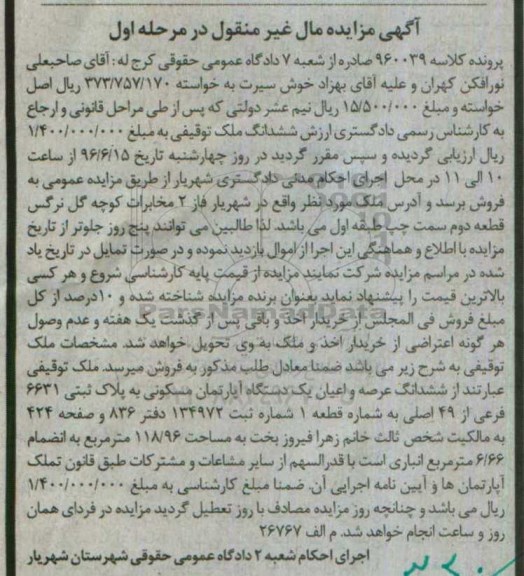 آگهی مزایده مال غیر منقول در مرحله اول
پرونده کلاسه ۹۶۰۰۳۹ صادره از شعبه ۷ دادگاه عمومی حقوقی کرج له: آقای صاحبعلی
نورافکن کهران و علیه آقای بهزاد خوش سیرت به خواسته ۳۷۳/۷۵۷/۱۷۰ ریال اصل
خواسته و مبلغ ۱۵/۵۰۰/۰۰۰ ریال نیم عشر دولتی که پس از طی مراحل قانونی و ارجاع
به کارشناس رسمی دادگستری ارزش ششدانگ ملک توقیفی به مبلغ ۱/۴۰۰/۰۰۰/۰۰۰
ریال ارزیابی گردیده و سپس مقرر گردید در روز چهارشنبه تاریخ ۹۶/۶/۱۵ از ساعت
۱۰ الی ۱۱ در محل اجرای احکام مدنی دادگستری شهریار از طریق مزایده عمومی به
فروش برسد و آدرس ملک مورد نظر واقع در شهریار فاز ۲ مخابرات کوچه گل نرگس
قطعه دوم سمت چپ طبقه اول می باشد. لذا طالبین می توانند پنج روز جلوتر از تاریخ
مزایده با اطلاع و هماهنگی این اجرا از اموال بازدید نموده و در صورت تمایل در تاریخ یاد
شده در مراسم مزایده شرکت نمایند مزایده از قیمت پایه کارشناسی شروع و هر کسی
بالاترین قیمت را پیشنهاد نماید بعنوان برنده مزایده شناخته شده و ۱۰درصد از کل
مبلغ فروش فی المجلس از خریدار اخذ و باقی پس از گذشت یک هفته و عدم وصول
هر گونه اعتراضی از خریدار اخذ و ملک به وی تحویل خواهد شد. مشخصات ملک
توقیفی به شرح زیر می باشد ضمنا معادل طلب مذکور به فروش میرسد. ملک توقیفی
عبارتند از ششدانگ عرصه و اعیان یک دستگاه آپارتمان مسکونی به پلاک ثبتی ۶۶۳۱
فرعی از ۴۹ اصلی به شماره قطعه ۱ شماره ثبت ۱۳۴۹۷۲ دفتر ۸۳۶ و صفحه ۴۲۴
به مالکیت شخص ثالث خانم زهرا فیروز بخت به مساحت ۱۱۸/۹۶ مترمربع به انضمام
۶/۶۶ مترمربع انباری است با قدرالسهم از سایر مشاعات و مشترکات طبق قانون تملک
آپارتمان ها و آیین نامه اجرایی آن. ضمنا مبلغ کارشناسی به مبلغ ۱/۴۰۰/۰۰۰/۰۰۰
ریال می باشد و چنانچه روز مزایده مصادف با روز تعطیل گردید مزایده در فردای همان
روز و ساعت انجام خواهد شد. م الف ۲۶۷۶۷
اجرای احکام شعبه ۲ دادگاه عمومی حقوقی شهرستان شهریار
ParsNamadData